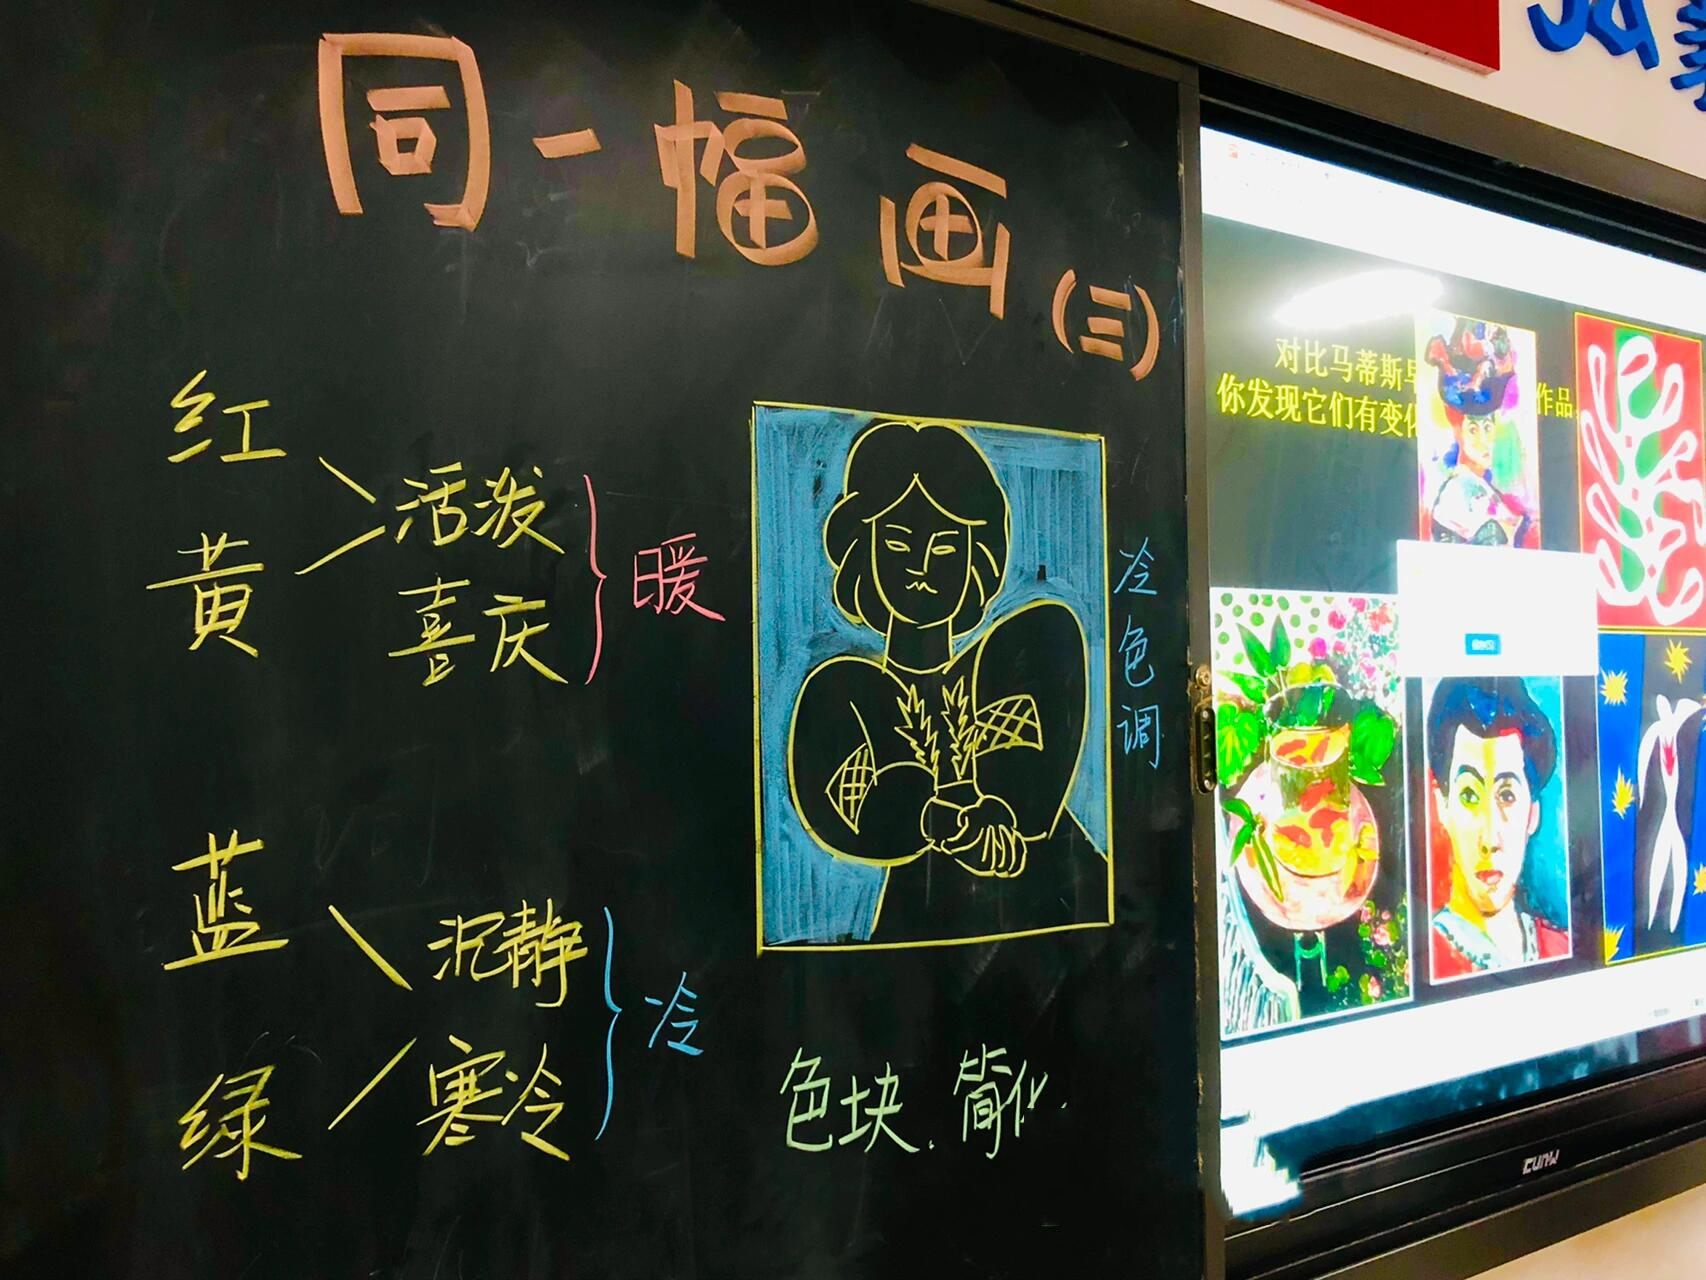 同一幅画(三)
红
黄
活泼
喜庆
暖
蓝
绿
沉静
寒冷
冷
冷色调
色块.简化.
对比马蒂斯早
作品
你发现它们有变化